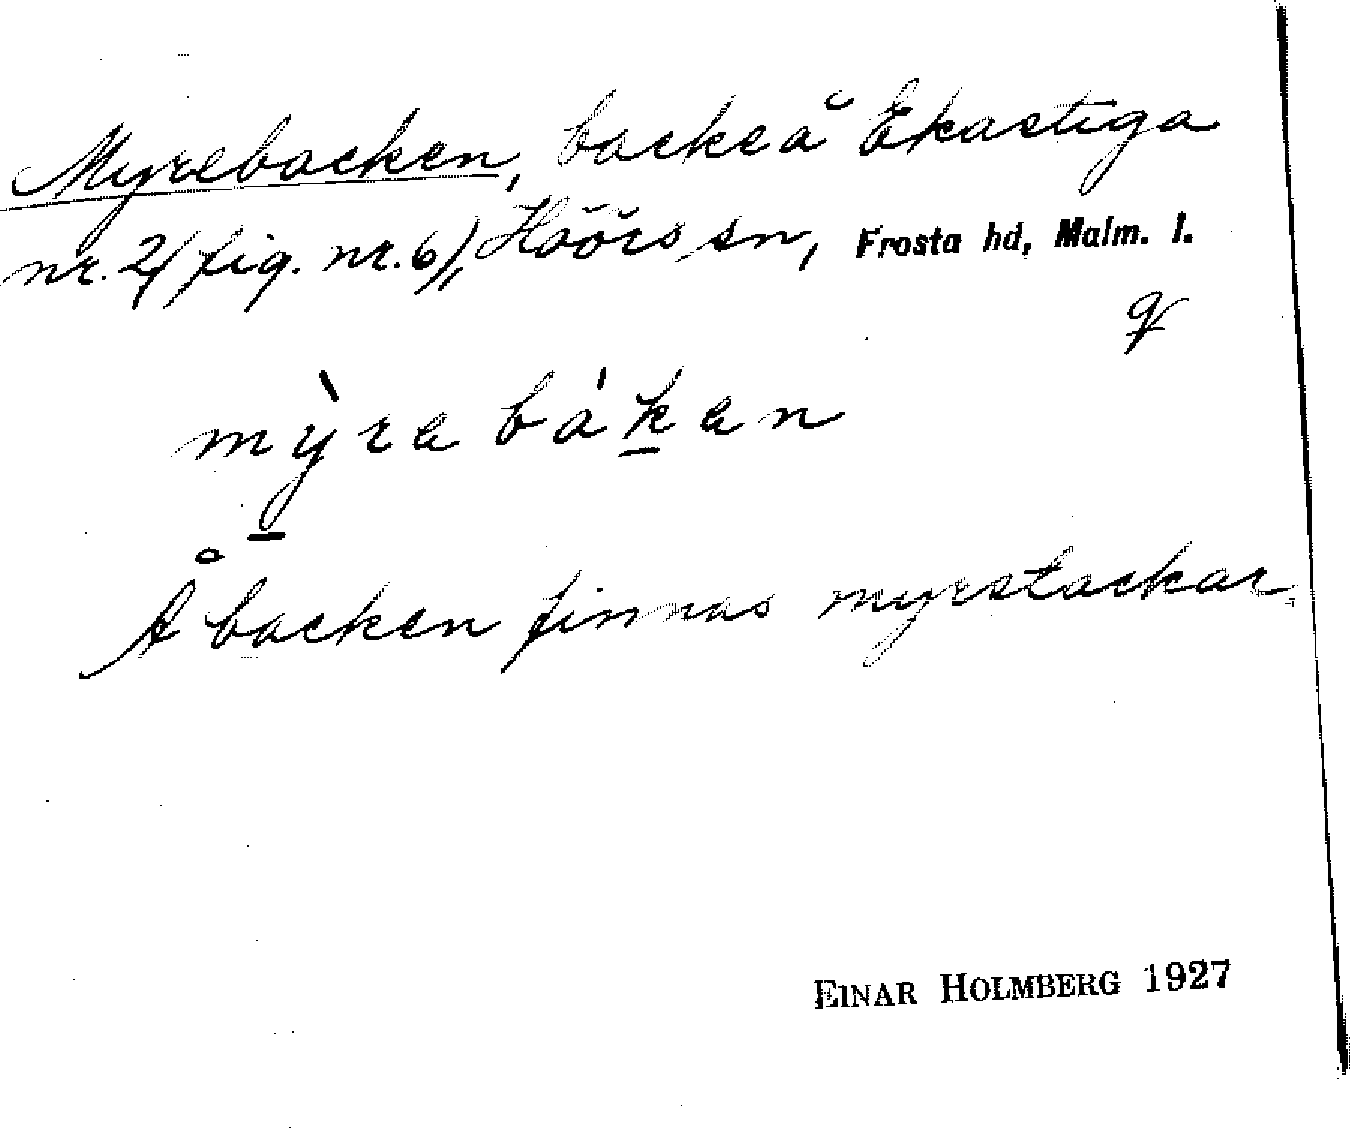 Myrebacken, backe å Ekastiga
nr. 2 (fig. nr. 6), Höörs sn, Frosta hd, Malm. l.
q
mỳra bákan
Å backen finnas myrstackar.
EINAR HOLMBERG 1927